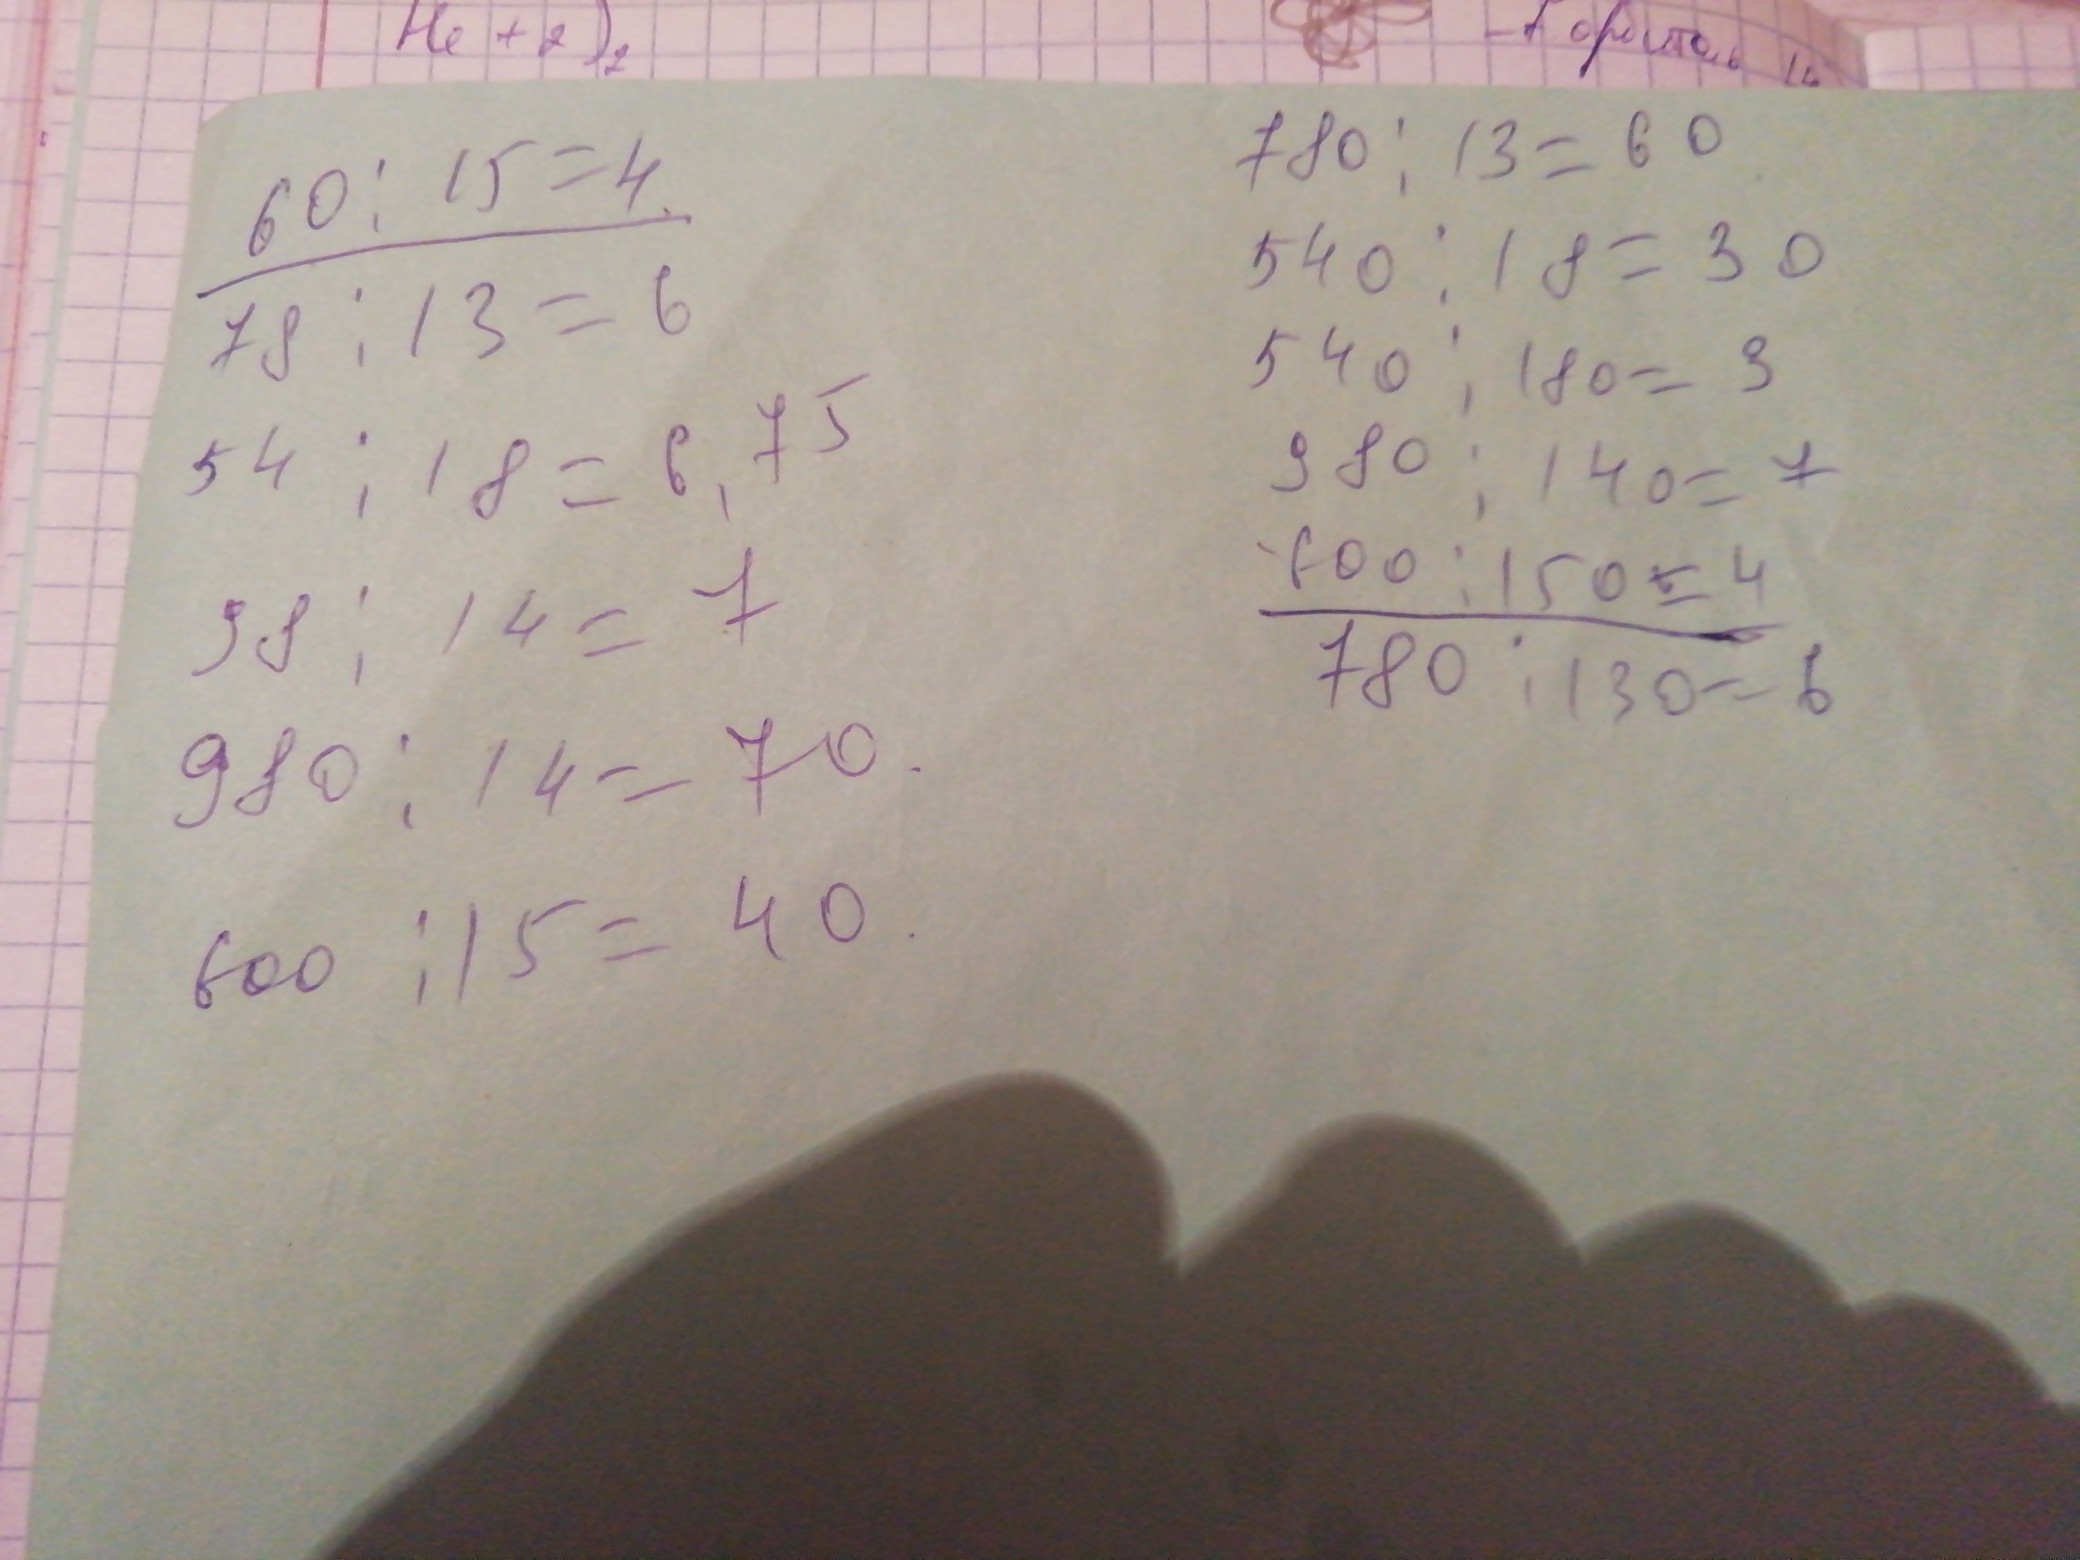 He + 2 ) 2
60 : 15 = 4.
78 : 13 = 6
54 : 18 = 6,75
98 : 14 = 7
980 : 14 = 70.
600 : 15 = 40.
780 : 13 = 60
540 : 18 = 30
540 : 180 = 3
980 : 140 = 7
600 : 150 = 4
780 : 130 = 6